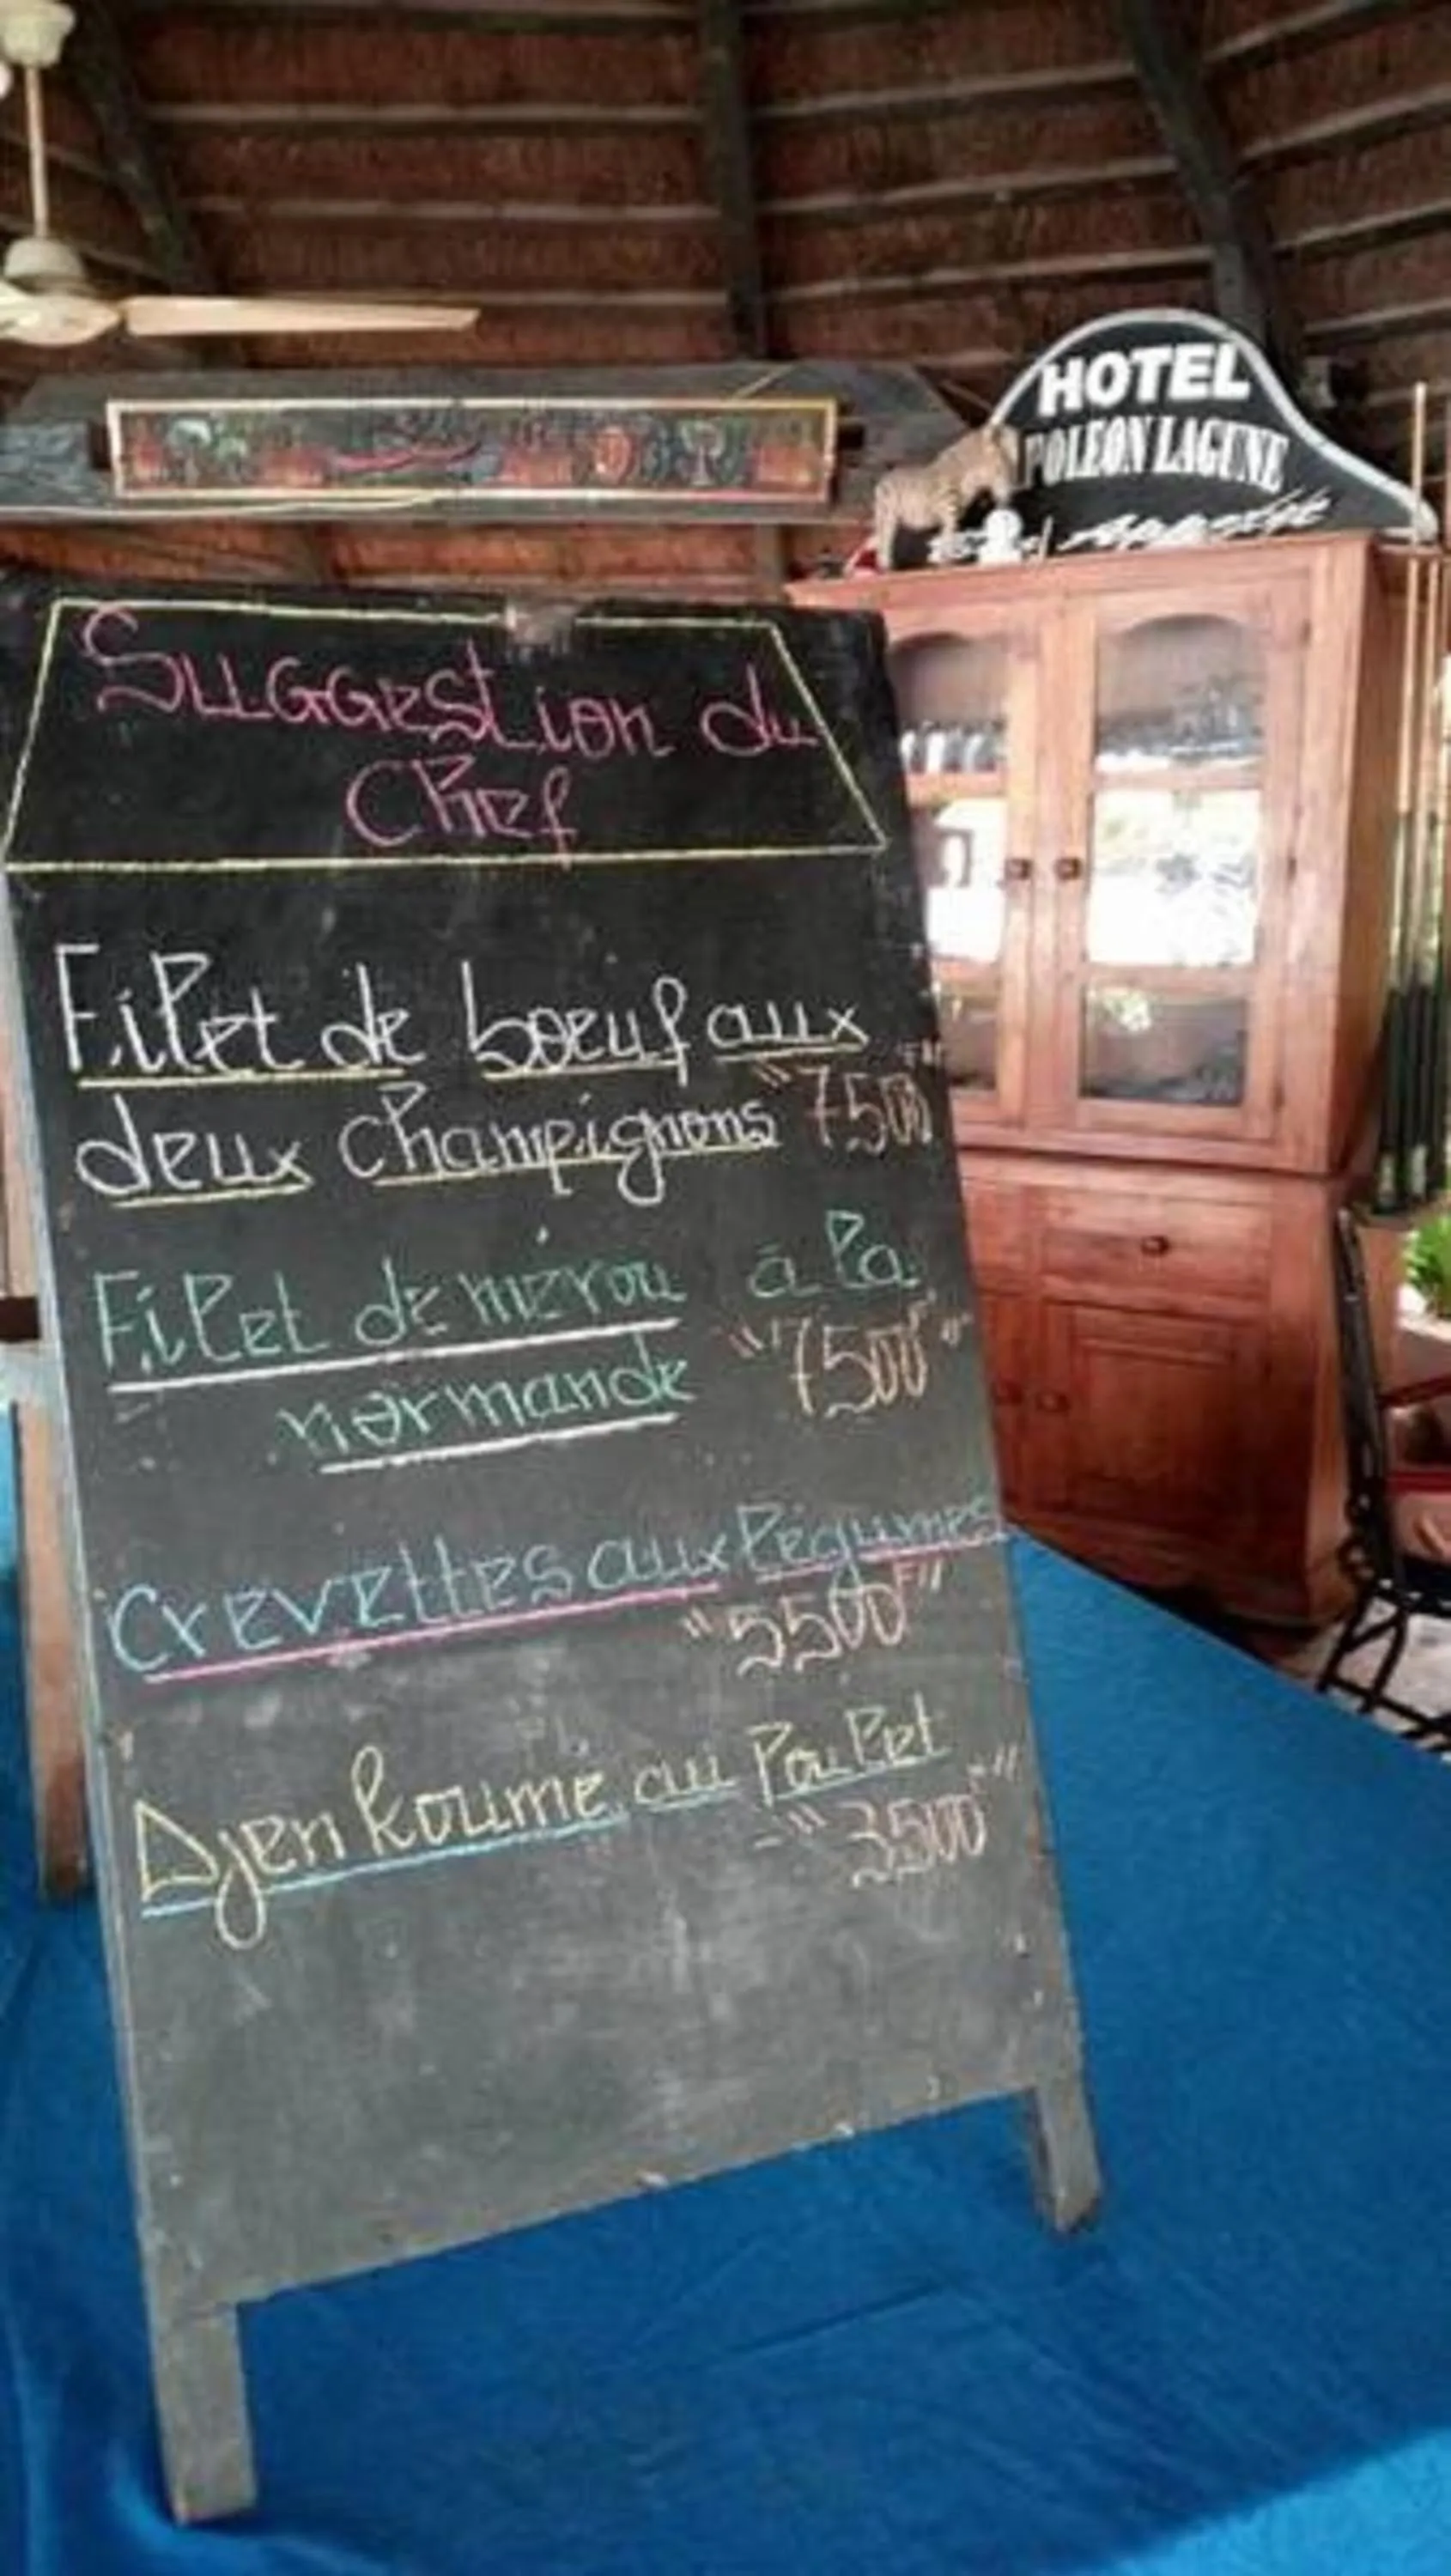 HOTEL
POLEON LAGUNE
Appetit
Suggestion du
Chef
Filet de boeuf aux
deux champignons "7500F"
Filet de mérou à la
normande "7500F"
Crevettes aux légumes
"5500F"
Djenkoumé au Poulet
"3500F"